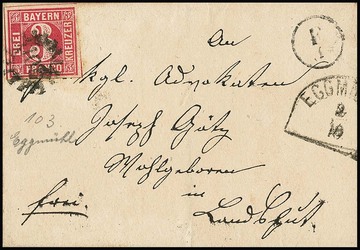 BAYERN
DREI
KREUZER
3
FRANCO
An
kgl. Advokaten
Joseph Götz
Wohlgeboren
in
Landshut.
frei.
103
Eggmühl
EGGMÜ
2
10